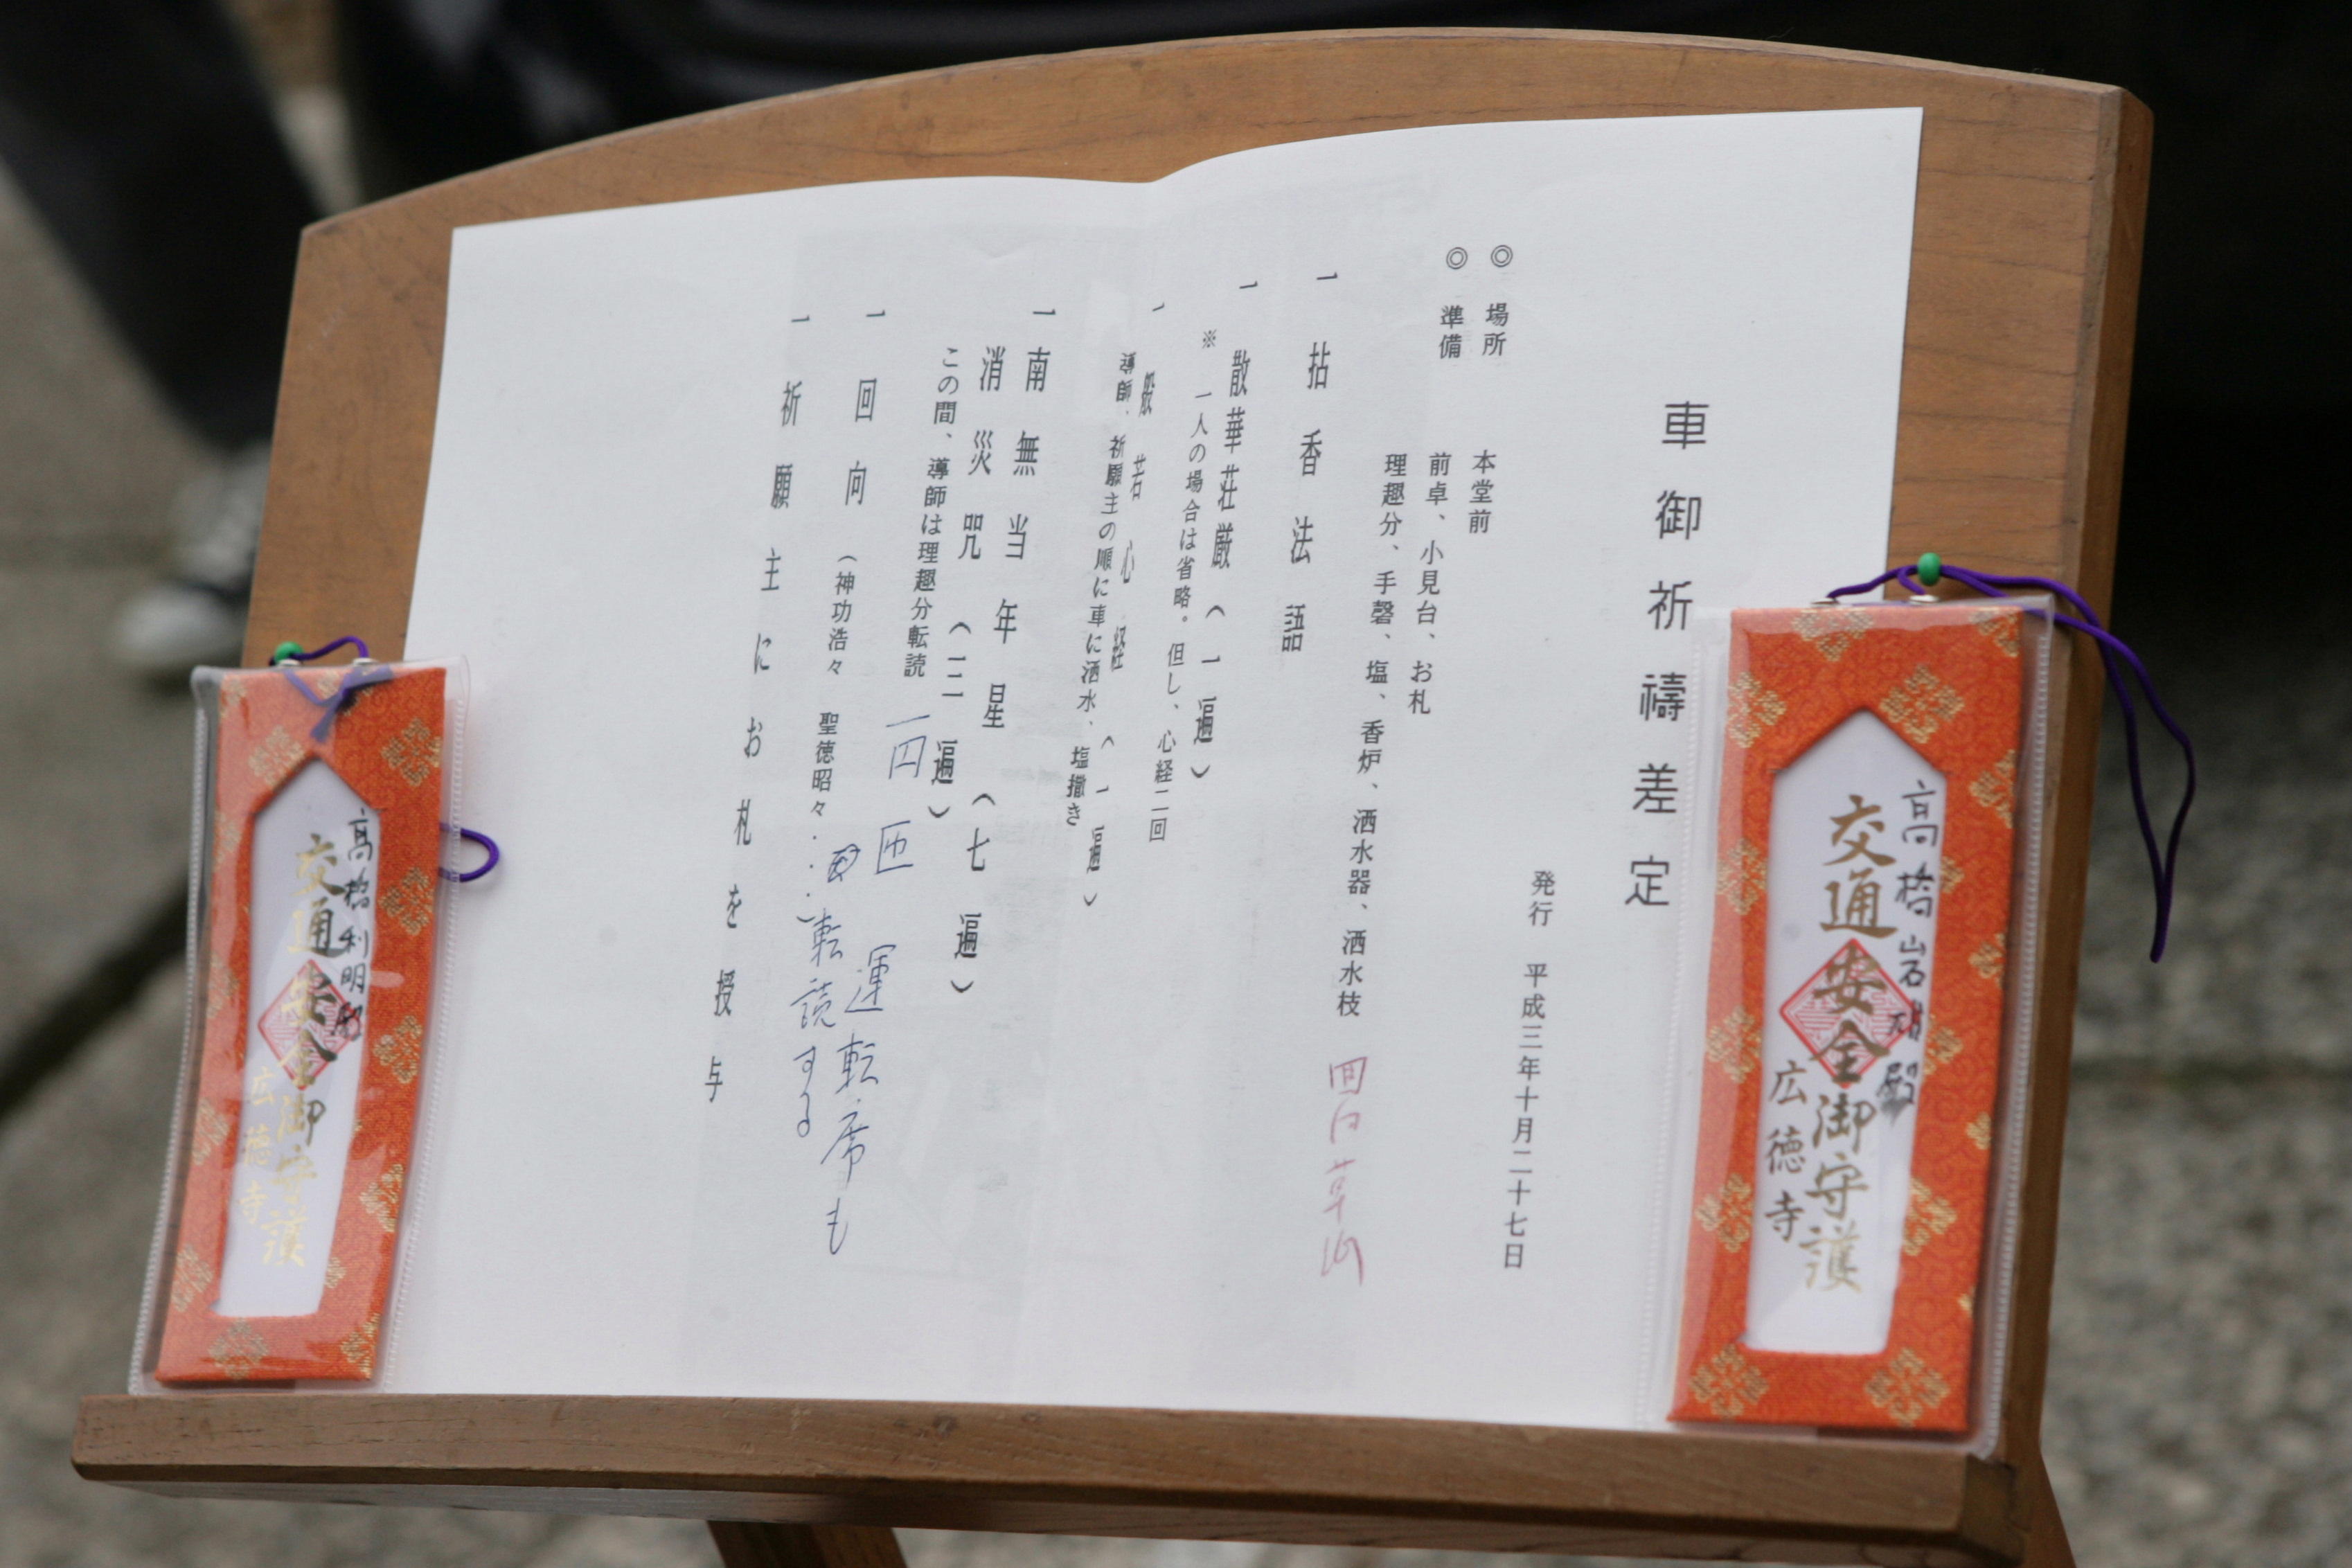 車御祈禱差定
発行 平成三年十月二十七日
◎ 場所 本堂前
◎ 準備 前卓、小見台、お札
理趣分、手磬、塩、香炉、洒水器、洒水枝
一 拈香法語
一 散華荘厳（一遍）
※ 一人の場合は省略。但し、心経二回
一 般若心経（一遍）
導師、祈願主の順に車に洒水、塩撒き
一 南無当年星（七遍）
消災咒（三遍）
この間、導師は理趣分転読
運転席も
転読する
一 回向（神功浩々 聖徳昭々……）
一 祈願主にお札を授与
高橋
殿
交通安全御守護
広徳寺
高橋利明殿
交通安全御守護
広徳寺